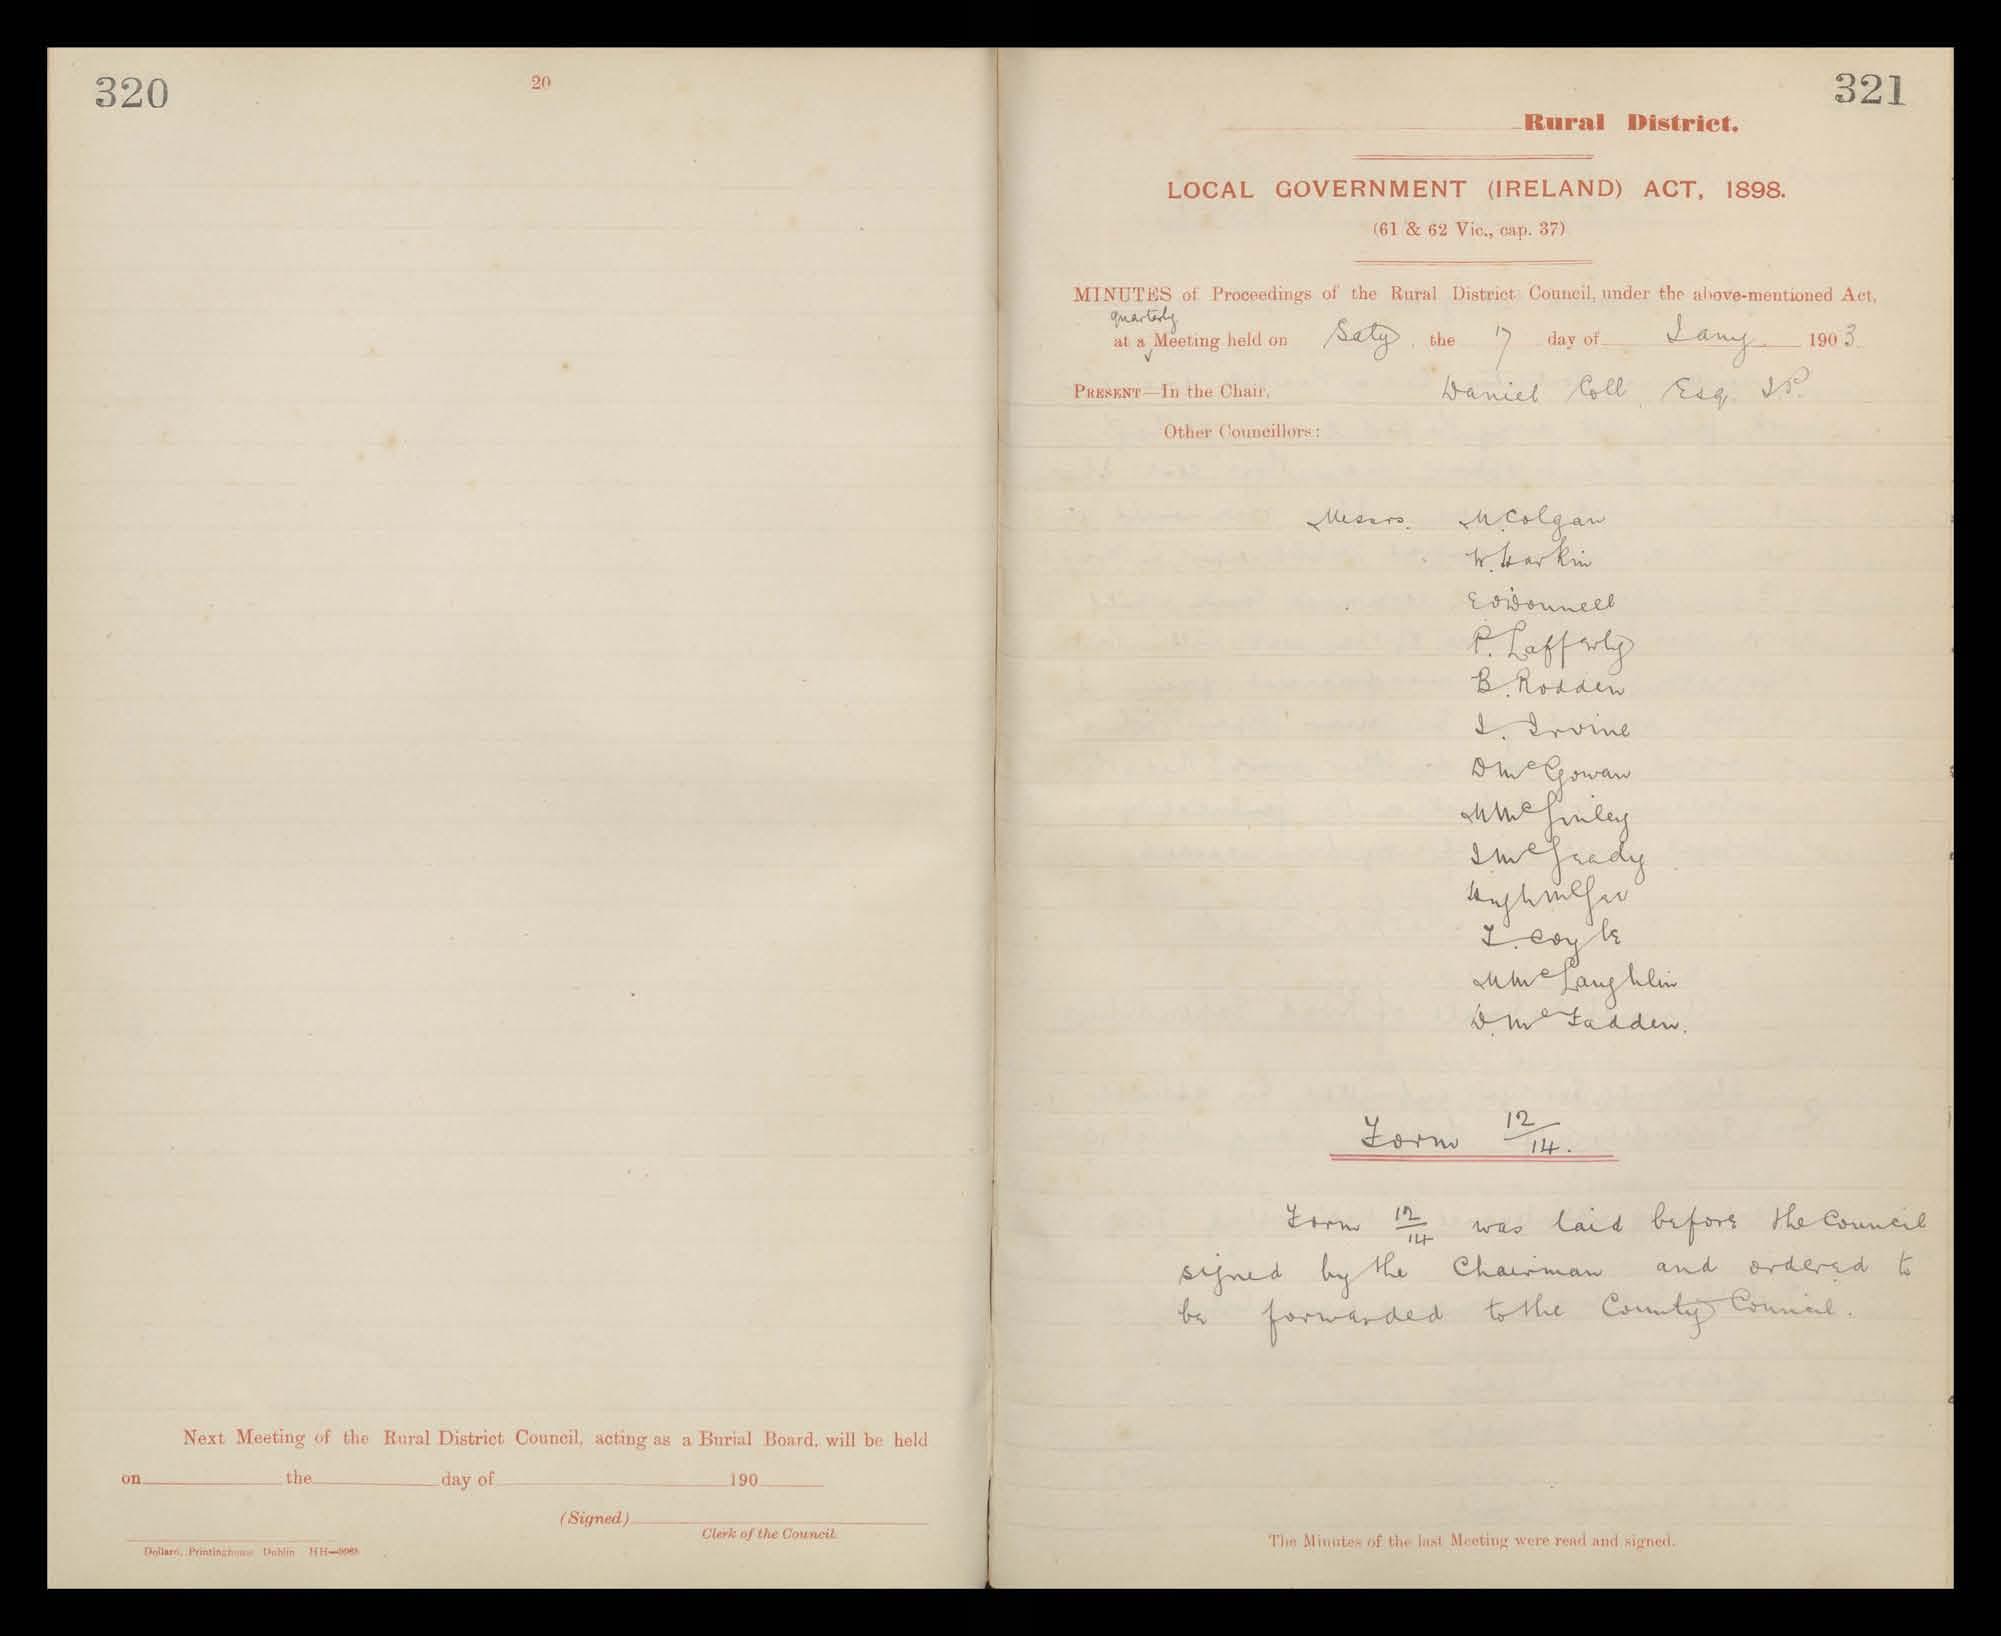 320
20
Next Meeting of the Rural District Council, acting as a Burial Board, will be held
on the day of 190
(Signed)
Clerk of the Council.
Dollard, Printinghouse Dublin HH
321
Rural District.
LOCAL GOVERNMENT (IRELAND) ACT, 1898.
(61 & 62 Vic., cap. 37)
MINUTES of Proceedings of the Rural District Council, under the above-mentioned Act,
quarterly
at a Meeting held on Saty the 17 day of Jany 1903
PRESENT—In the Chair, Daniel Coll Esq J.P.
Other Councillors:
Messrs. M. Colgan
W. Harkin
E O'Donnell
P. Lafferty
B. Rodden
J. Irvine
D McGowan
M McGinley
J McGeady
Hugh McGee
F. Coyle
M McLaughlin
D. McFadden.
Form 12/14.
Form 12/14 was laid before the Council
signed by the Chairman and ordered to
be forwarded to the County Council.
The Minutes of the last Meeting were read and signed.